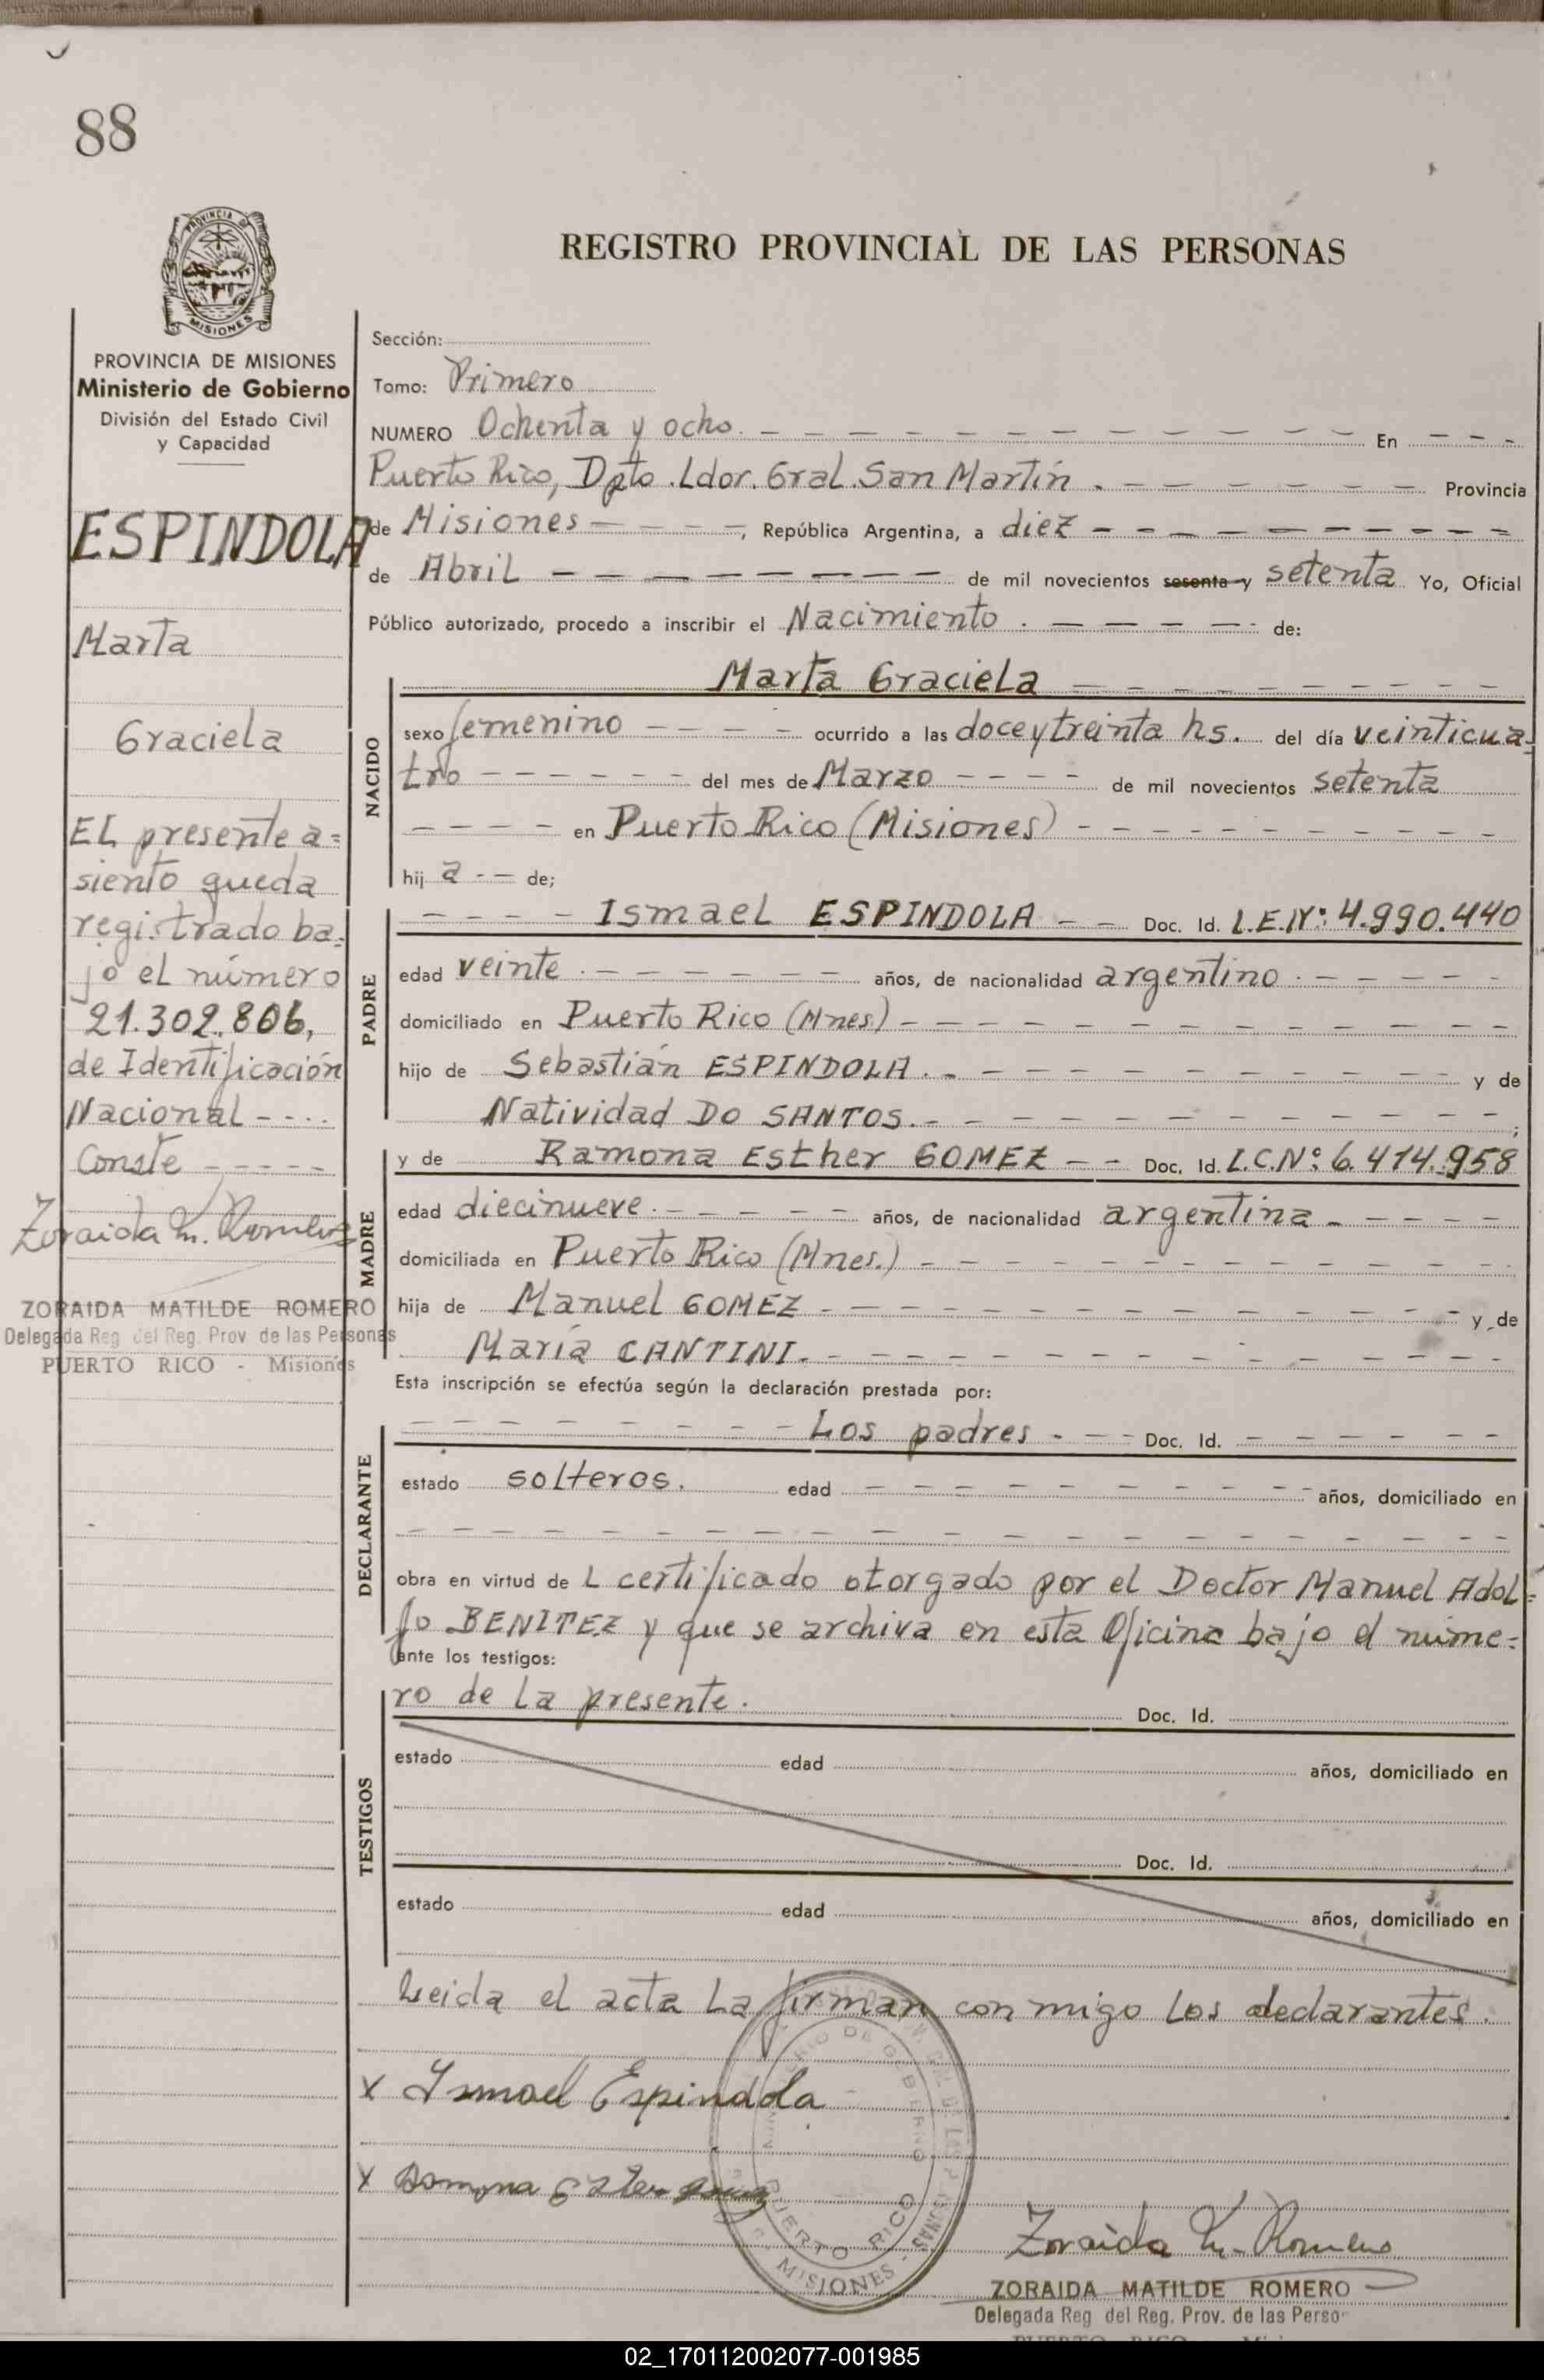 88
PROVINCIA DE
MISIONES
REGISTRO PROVINCIAL DE LAS PERSONAS
PROVINCIA DE MISIONES
Ministerio de Gobierno
División del Estado Civil
y Capacidad
ESPINDOLA
Marta
Graciela
El presente a=
siento queda
registrado ba=
jo el número
21.302.806,
de Identificación
Nacional - - - .
Conste - - - - -
Zoraida M. Romero
ZORAIDA MATILDE ROMERO
Delegada Reg del Reg. Prov de las Personas
PUERTO RICO - Misiones
Sección:
Tomo: Primero
NUMERO Ochenta y ocho. - - - En - - -
Puerto Rico, Dpto. Ldor. Gral. San Martín. - - - Provincia
de Misiones - - - , República Argentina, a diez - - -
de Abril - - - de mil novecientos sesenta y setenta Yo, Oficial
Público autorizado, procedo a inscribir el Nacimiento. - - - de:
NACIDO
Marta Graciela - - -
sexo femenino - - - ocurrido a las doce y treinta hs. del día veinticua=
tro - - - del mes de Marzo - - - de mil novecientos setenta
- - - en Puerto Rico (Misiones) - - -
hij a - - de;
PADRE
- - - Ismael ESPINDOLA - - Doc. Id. L.E.Nº: 4.990.440
edad veinte. - - - años, de nacionalidad argentino. - - -
domiciliado en Puerto Rico (Mnes) - - -
hijo de Sebastián ESPINDOLA. - - - y de
Natividad DO SANTOS. - - - ;
MADRE
y de Ramona Esther GOMEZ - - Doc. Id. L.C.Nº: 6.414.958
edad diecinueve. - - - años, de nacionalidad argentina - - -
domiciliada en Puerto Rico (Mnes.) - - -
hija de Manuel GOMEZ - - - y de
María CANTINI. - - -
Esta inscripción se efectúa según la declaración prestada por:
DECLARANTE
- - - Los padres - - - Doc. Id. - - -
estado solteros. edad - - - años, domiciliado en
- - -
obra en virtud de L certificado otorgado por el Doctor Manuel Adol=
fo BENITEZ y que se archiva en esta Oficina bajo el núme=
ante los testigos:
ro de la presente. Doc. Id.
TESTIGOS
estado edad años, domiciliado en
Doc. Id.
estado edad años, domiciliado en
Leida el acta la firman conmigo los declarantes.
x Ismael Espindola
x Ramona Ester
MINISTERIO DE GOBIERNO
PUERTO RICO
MISIONES
Zoraida M. Romero
ZORAIDA MATILDE ROMERO
Delegada Reg del Reg. Prov. de las Perso
02_170112002077-001985